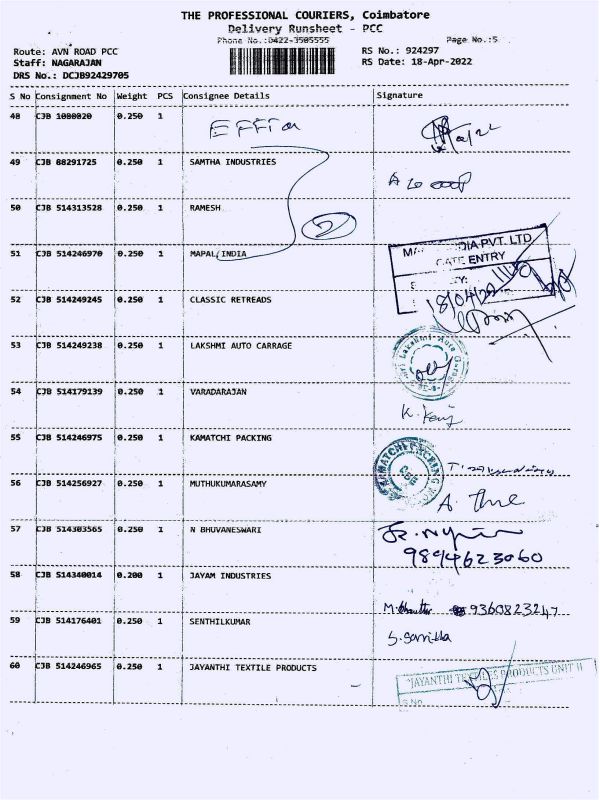 THE PROFESSIONAL COURIERS, Coimbatore
Delivery Runsheet - PCC
Phone No.:0422-3505555
Page No.:5
Route: AVN ROAD PCC
RS No.: 924297
Staff: NAGARAJAN
RS Date: 18-Apr-2022
DRS No.: DCJB92429705
S No Consignment No Weight PCS Consignee Details Signature
48 CJB 1080020 0.250 1 Effia
49 CJB 88291725 0.250 1 SAMTHA INDUSTRIES
50 CJB 514313528 0.250 1 RAMESH
2
51 CJB 514246970 0.250 1 MAPAL INDIA
DIA PVT. LTD
GATE ENTRY
18/04/22
52 CJB 514249245 0.250 1 CLASSIC RETREADS
53 CJB 514249238 0.250 1 LAKSHMI AUTO CARRAGE
Sri Lakshmi Auto Garage
54 CJB 514179139 0.250 1 VARADARAJAN
55 CJB 514246975 0.250 1 KAMATCHI PACKING
56 CJB 514256927 0.250 1 MUTHUKUMARASAMY
57 CJB 514303565 0.250 1 N BHUVANESWARI
9894623060
58 CJB 514340014 0.200 1 JAYAM INDUSTRIES
9360823247
59 CJB 514176401 0.250 1 SENTHILKUMAR
60 CJB 514246965 0.250 1 JAYANTHI TEXTILE PRODUCTS
JAYANTHI TEXTILES PRODUCTS UNIT II
S.No